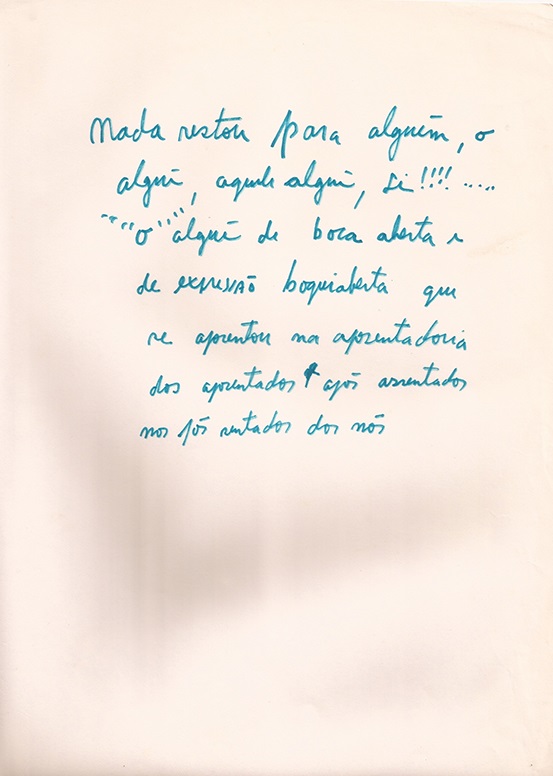 Nada restou para alguém, o
alguē, aquele alguē, si!!!! .....
"""o""" alguē de boca aberta e
de expressão boquiaberta que
se aposentou na aposentadoria
dos aposentados após assentados
nos pōs sentados dos nós